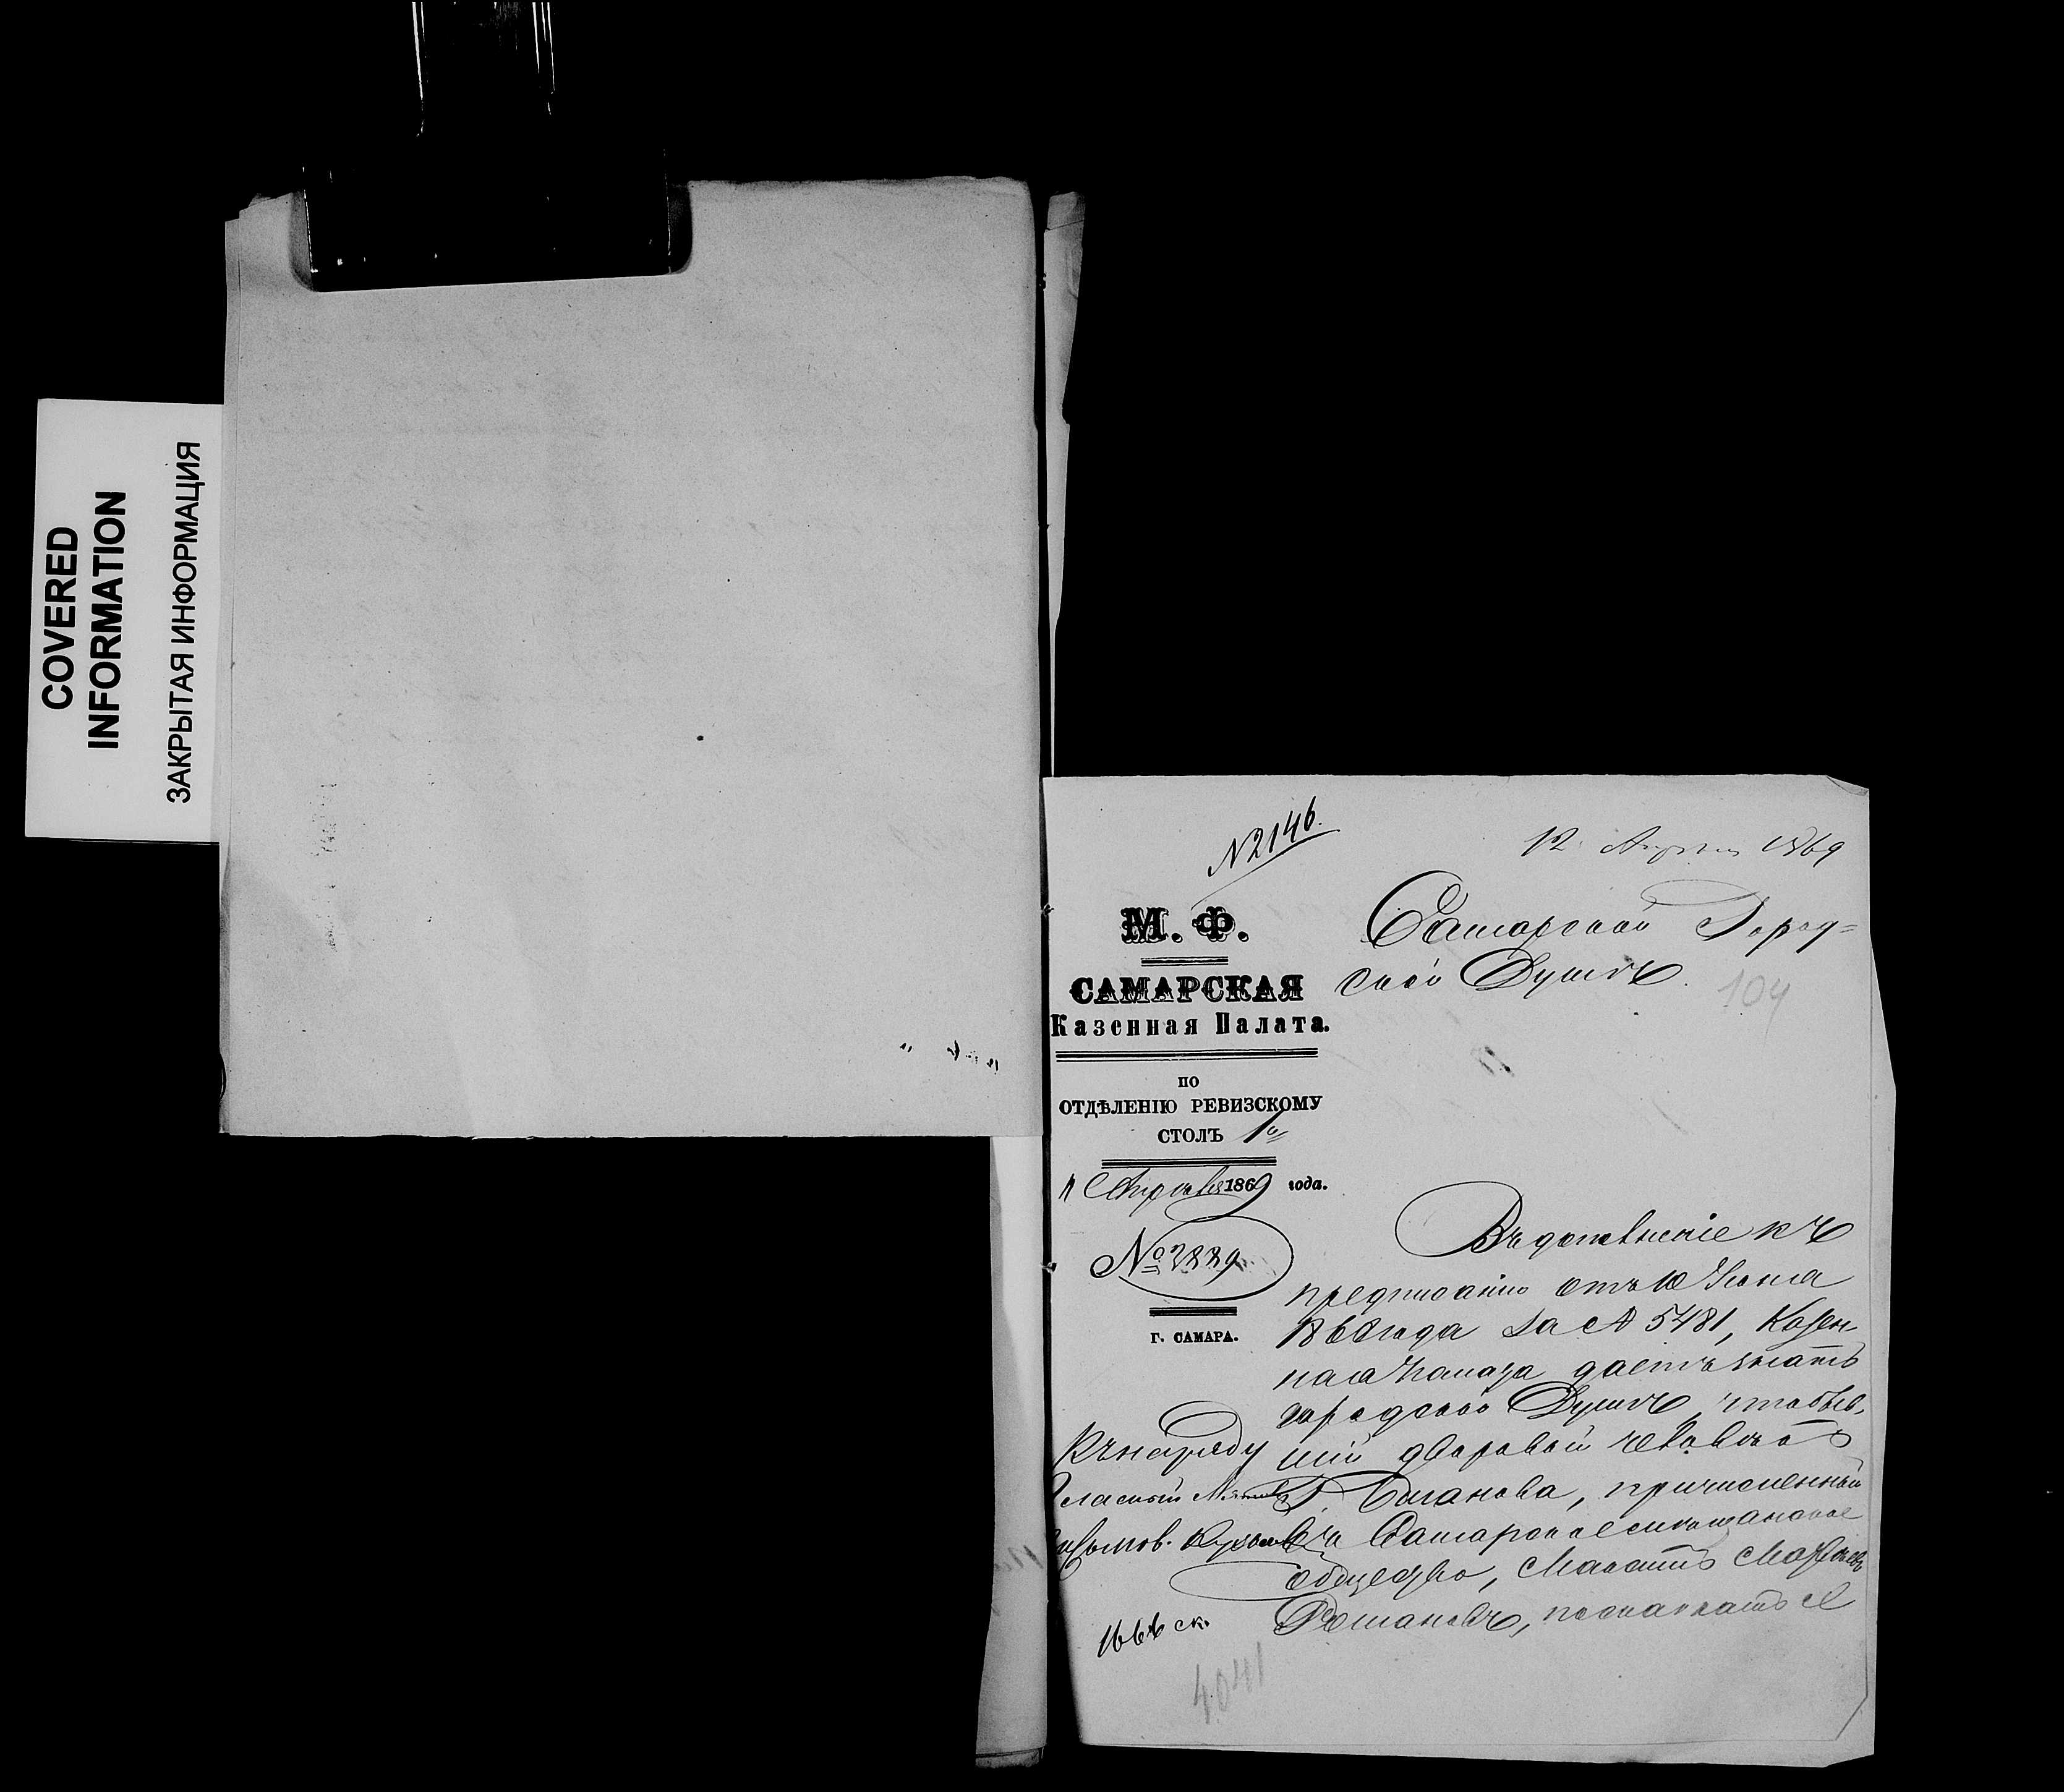 COVERED
INFORMATION
ЗАКРЫТАЯ ИНФОРМАЦИЯ
N 2146.
12 Апреля 1869
М. Ф.
САМАРСКАЯ
Казенная Палата.
ПО
ОТДѢЛЕНІЮ РЕВИЗСКОМУ
СТОЛЪ 1й
Апрѣля 1869 года.
№
Г. САМАРА.
Самарской Город=
ской Думѣ.
104
Въ дополненіе къ
предписанію отъ 10 Іюня
1868 года за № 5481, Казен-
ная Палата даетъ знать
городской Думѣ, что быв-
шій дворовый человѣкъ
Г. причисленный
въ Самарское мѣщанское
общество,
Романовъ,
Къ наряду
Гласный
4041